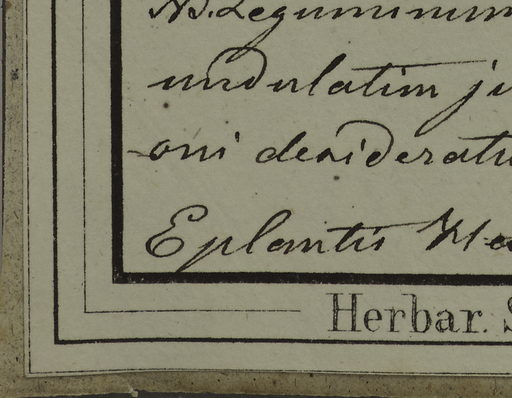 NB. Leguminum
undulatim ju
oni desideratu
E plantis Ha
Herbar. S